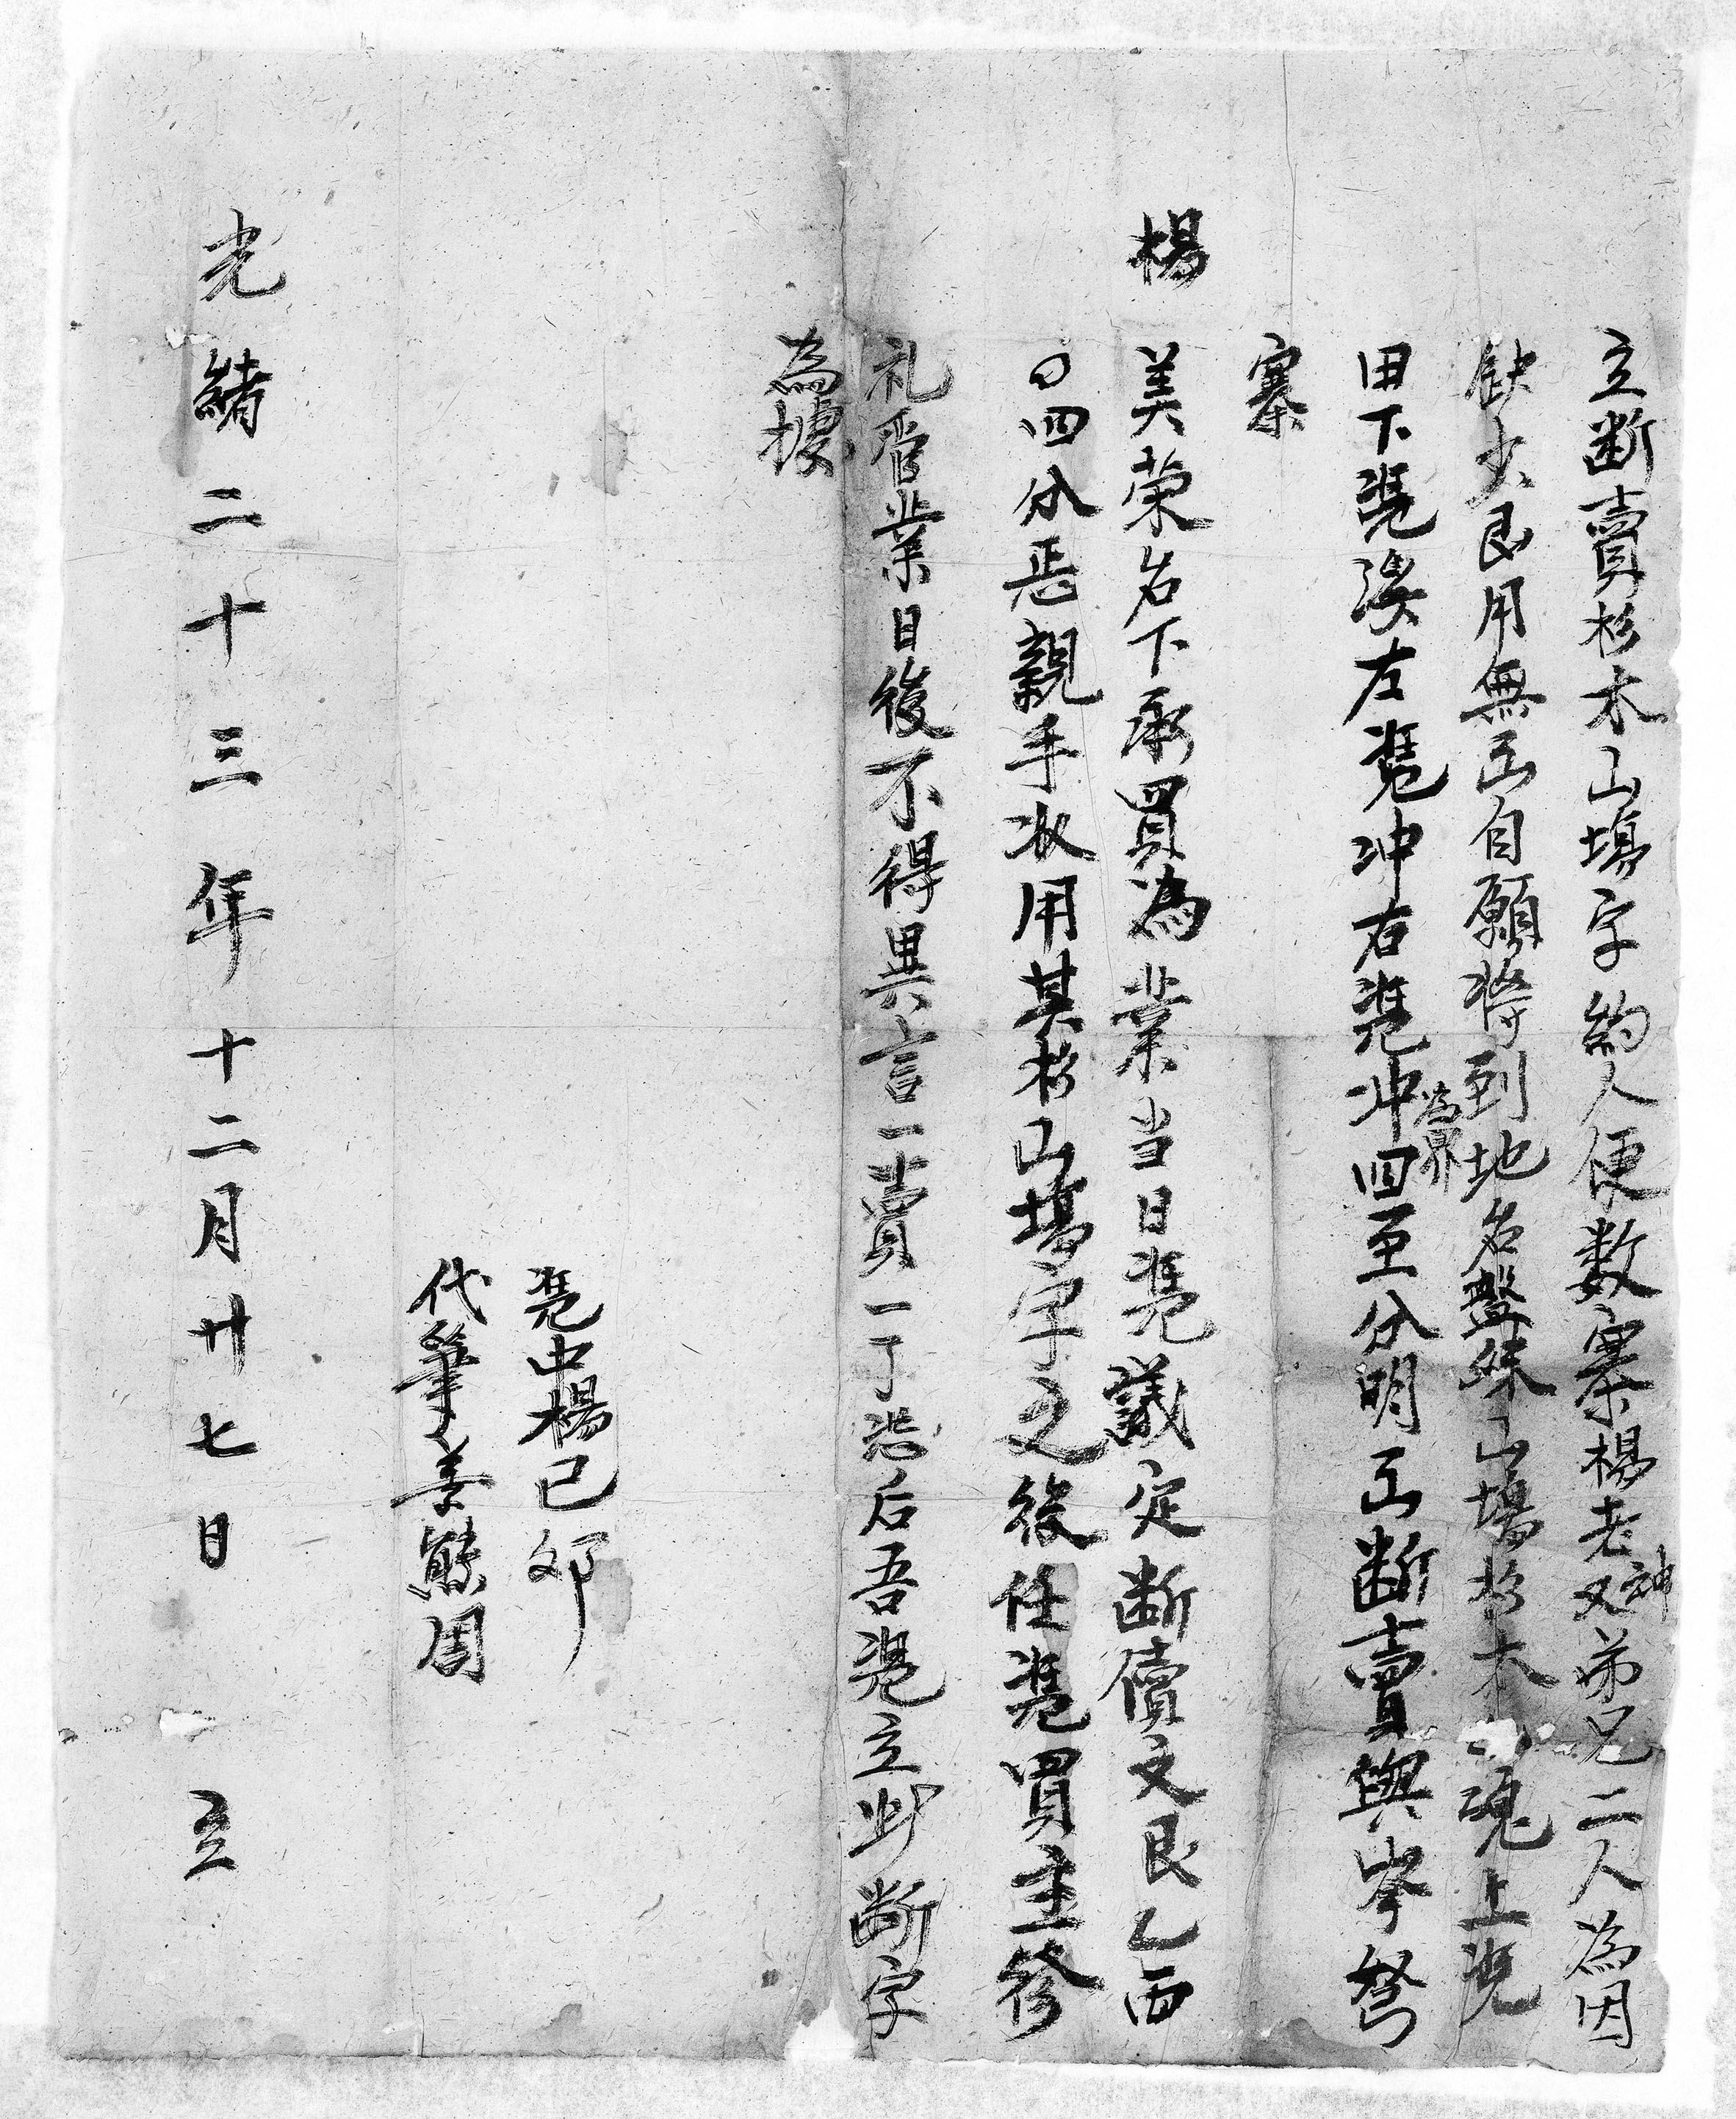 立断賣杉木山塲字約人便数寨楊老又神弟兄二人為因
缺少艮用無出自願将到地名盤殊山塲杉木塊上凭
田下凭溪左凭冲右凭冲為界四至分明出断賣與岑弩
寨
楊美荣名下承買為業当日凭議定断價文艮乙两
〇四分恁親手收用其杉山塲字之後任凭買主修
礼管業日後不得異言一賣一了恐后吾凭立此断字
為據
凭中楊已邜
代筆姜熊周
光緒二十三年十二月廿七日立